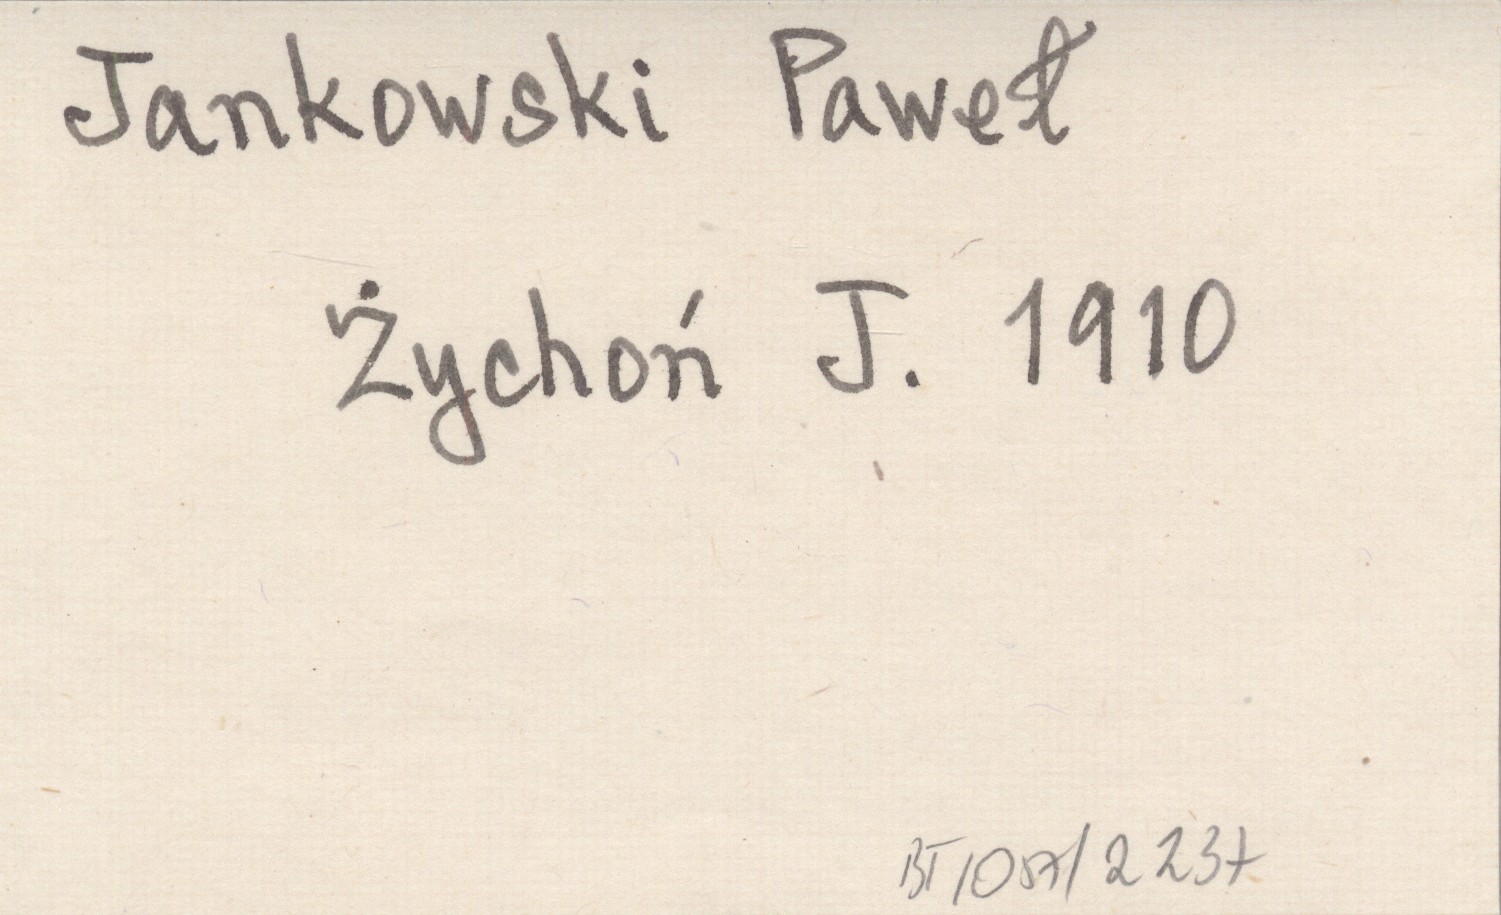 Jankowski Paweł
Żychoń J. 1910
BT/057/2237